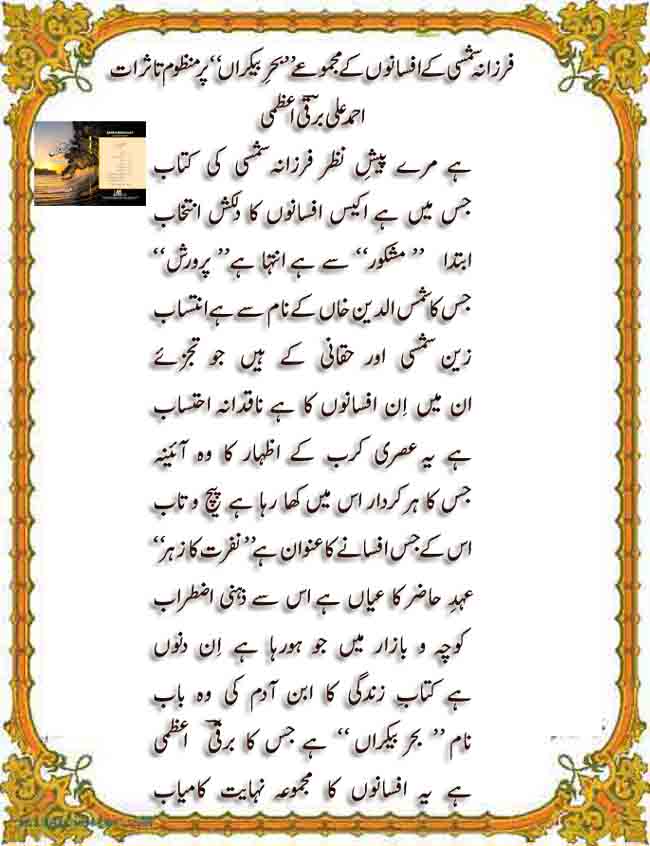 فرزانہ شمسی کے افسانوں کے مجموعے ’’بحرِ بیکراں‘‘ پر منظوم تاثرات
احمد علی برقی اعظمی
ہے مرے پیشِ نظر فرزانہ شمسی کی کتاب
جس میں ہے اکیس افسانوں کا دلکش انتخاب
ابتدا ’’مشکور‘‘ سے ہے انتہا ہے ’’پرورش‘‘
جس کا شمس الدین خاں کے نام سے ہے انتساب
زین شمسی اور حقانی کے ہیں جو تجزئے
ان میں اِن افسانوں کا ہے ناقدانہ احتساب
ہے یہ عصری کرب کے اظہار کا وہ آئینہ
جس کا ہر کردار اس میں کھا رہا ہے پیچ و تاب
اس کے جس افسانے کا عنوان ہے ’’نفرت کا زہر‘‘
عہدِ حاضر کا عیاں ہے اس سے ذہنی اضطراب
کوچہ و بازار میں جو ہورہا ہے اِن دنوں
ہے کتابِ زندگی کا ابن آدم کی وہ باب
نام ’’بحرِ بیکراں‘‘ ہے جس کا برقی اعظمی
ہے یہ افسانوں کا مجموعہ نہایت کامیاب